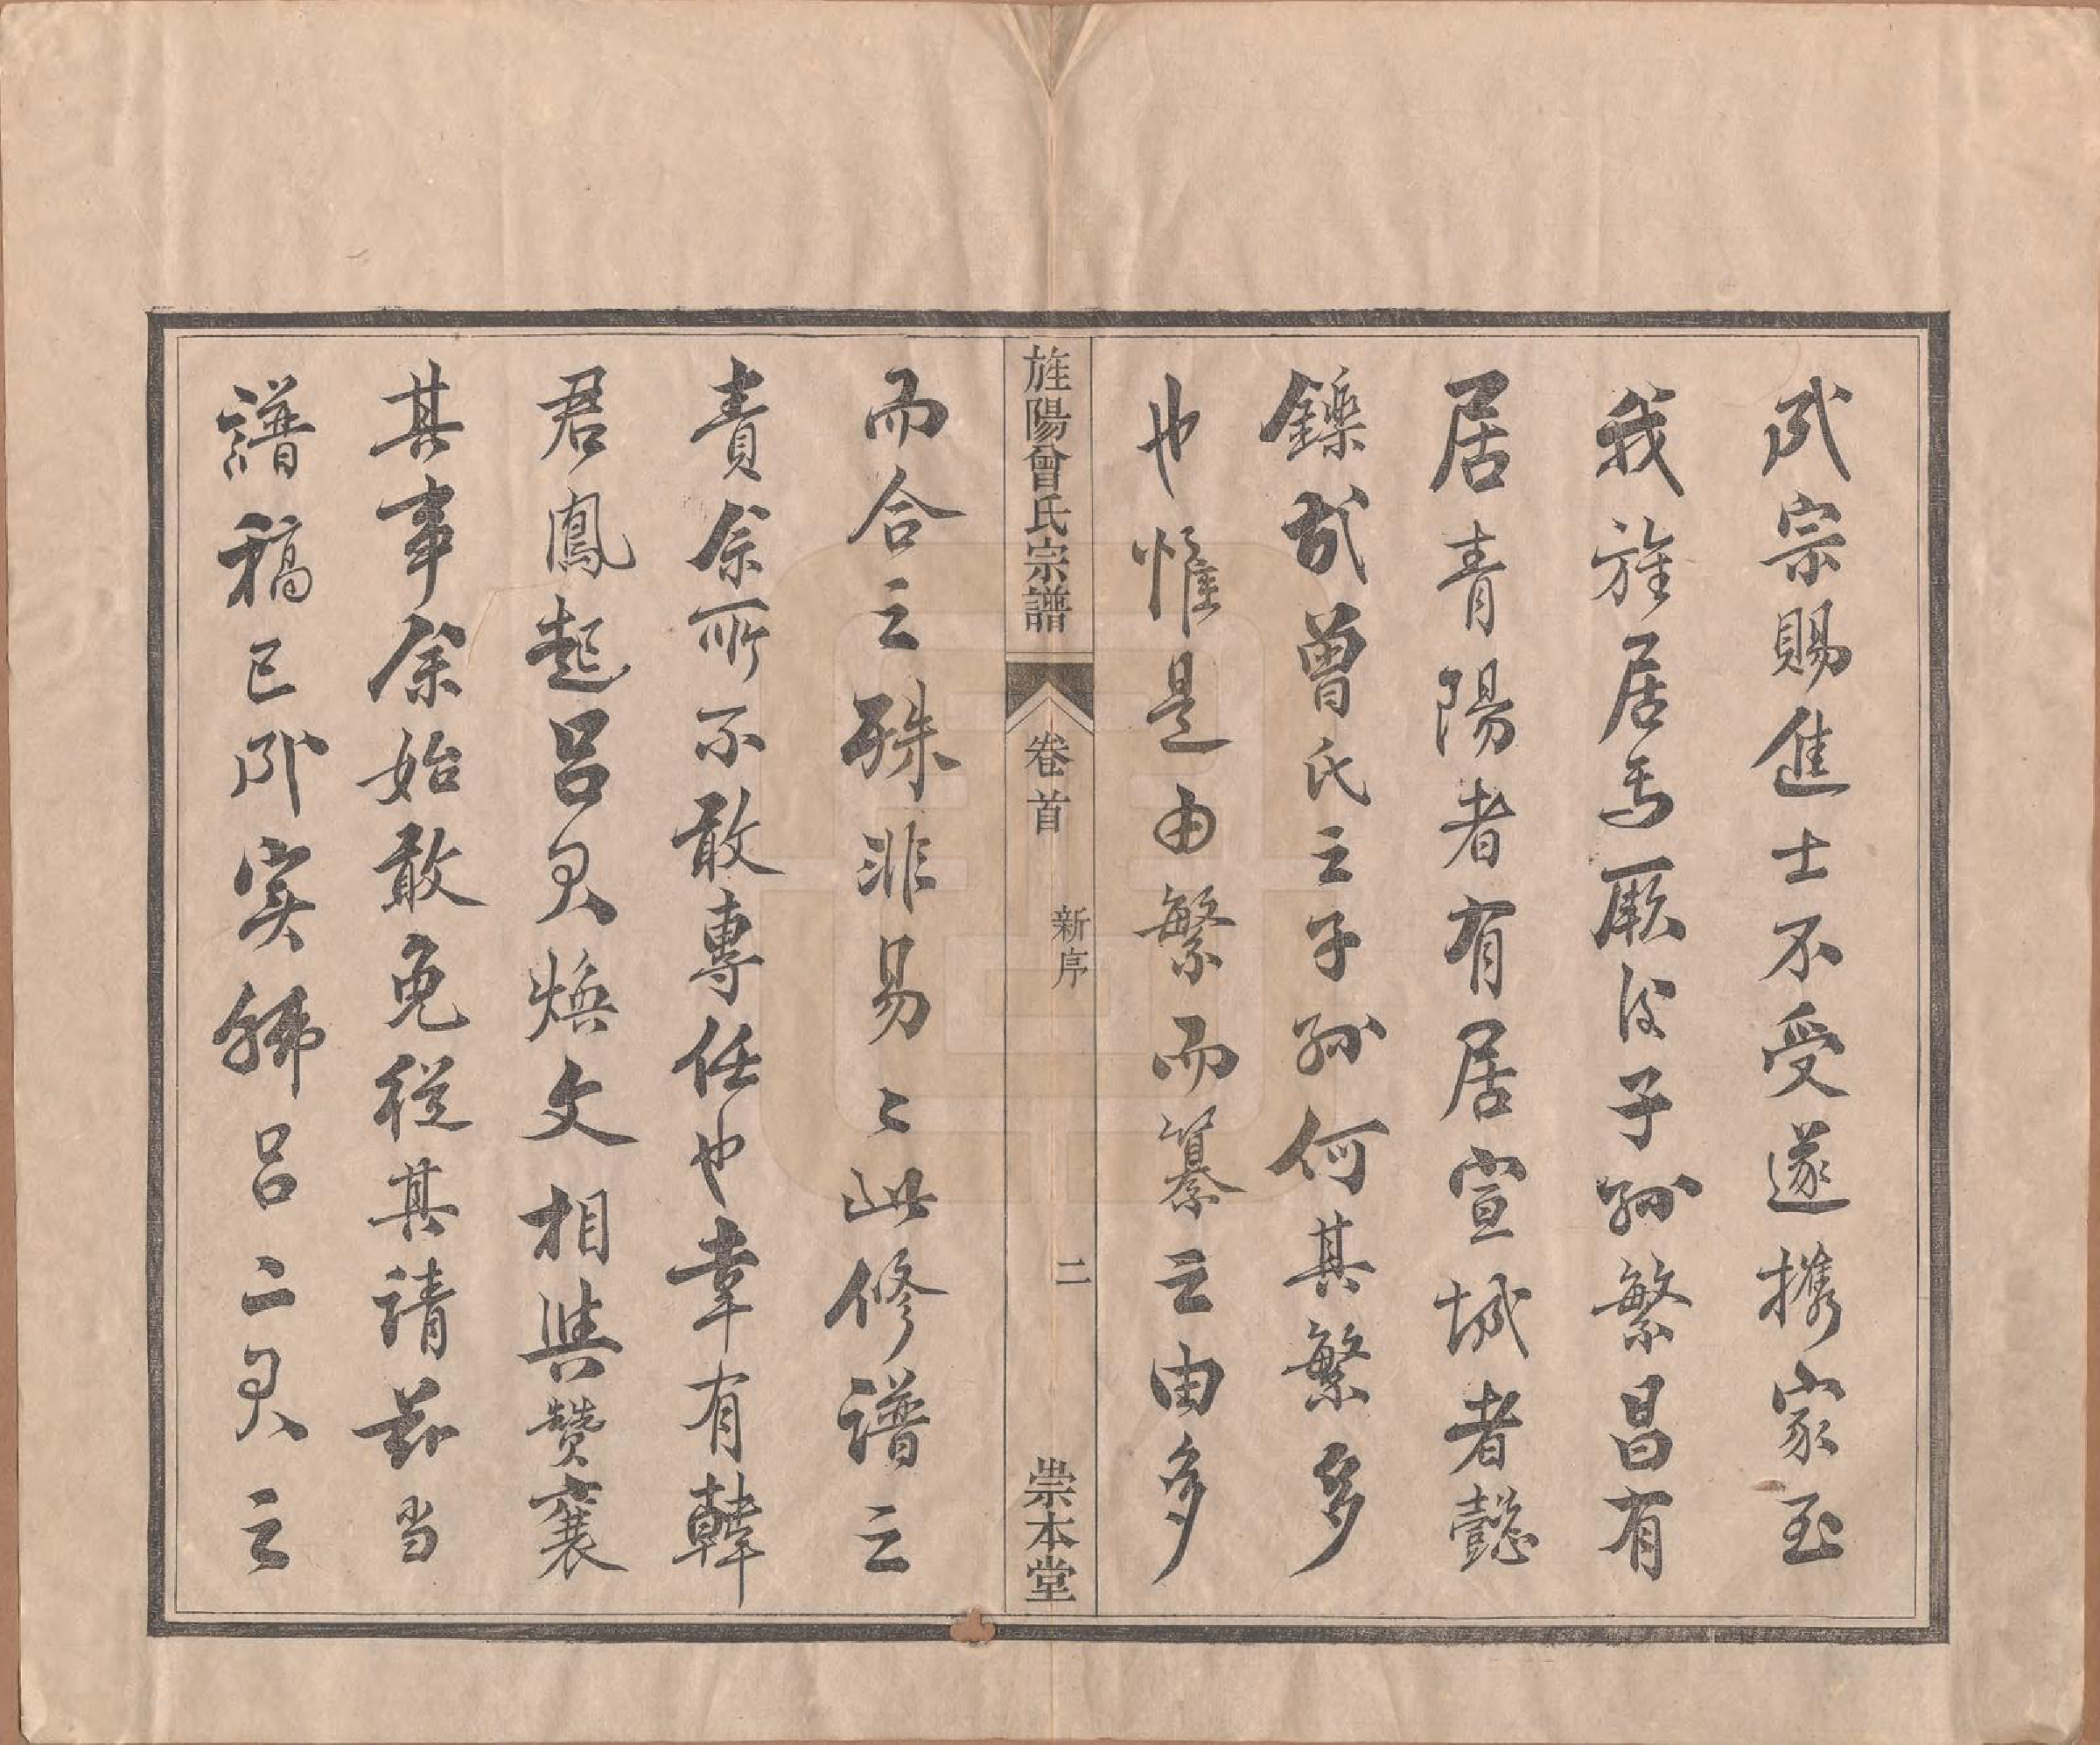 武宗賜進士不受遂携家至
我旌居焉厥后子孫繁昌有
居青陽者有居宣城者懿
鑠哉曾氏之子孫何其繁多
也惟是由繁而纂之由多
旌陽曾氏宗譜
卷首
新序
二
崇本堂
而合之殊非易〻此修譜之
責余所不敢專任也幸有韓
君鳳起呂君煥文相與贊襄
其事余始敢免從其請茲当
譜稿已成实韓呂二君之